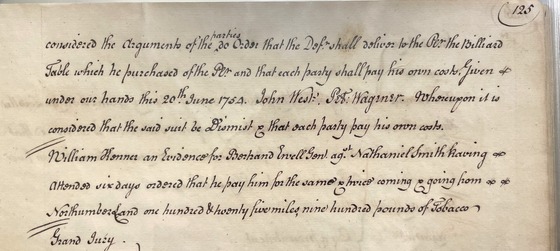 125
considered the Arguments of the parties do Order that the Defr. shall deliver to the Plt. the Billiard
Table which he purchased of the Plt and that each party shall pay his own costs. Given &
under our hands this 20th June 1754. John West. Pet. Wagener. Whereupon it is
considered that the said suit be Dismist & that each party pay his own costs.
William Kenner an Evidence for Bertrand Ewell Gent agst. Nathaniel Smith having &
Attended six days ordered that he pay him for the same & twice coming & going from & &
Northumberland one hundred & twenty five miles, nine hundred pounds of Tobacco
Grand Jury.